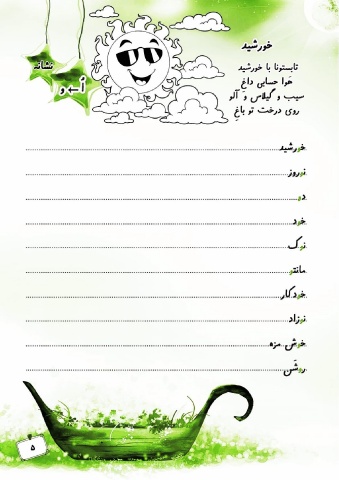 خورشید
تابستونا با خورشید
هوا حسابی داغِ
سیب و گیلاس و آلو
روی درخت تو باغِ
نشانه
اُ ← و
خورشید
نوروز
دو
خود
نوک
مانتو
خودکار
نوزاد
خوش مزه
روشَن
۵